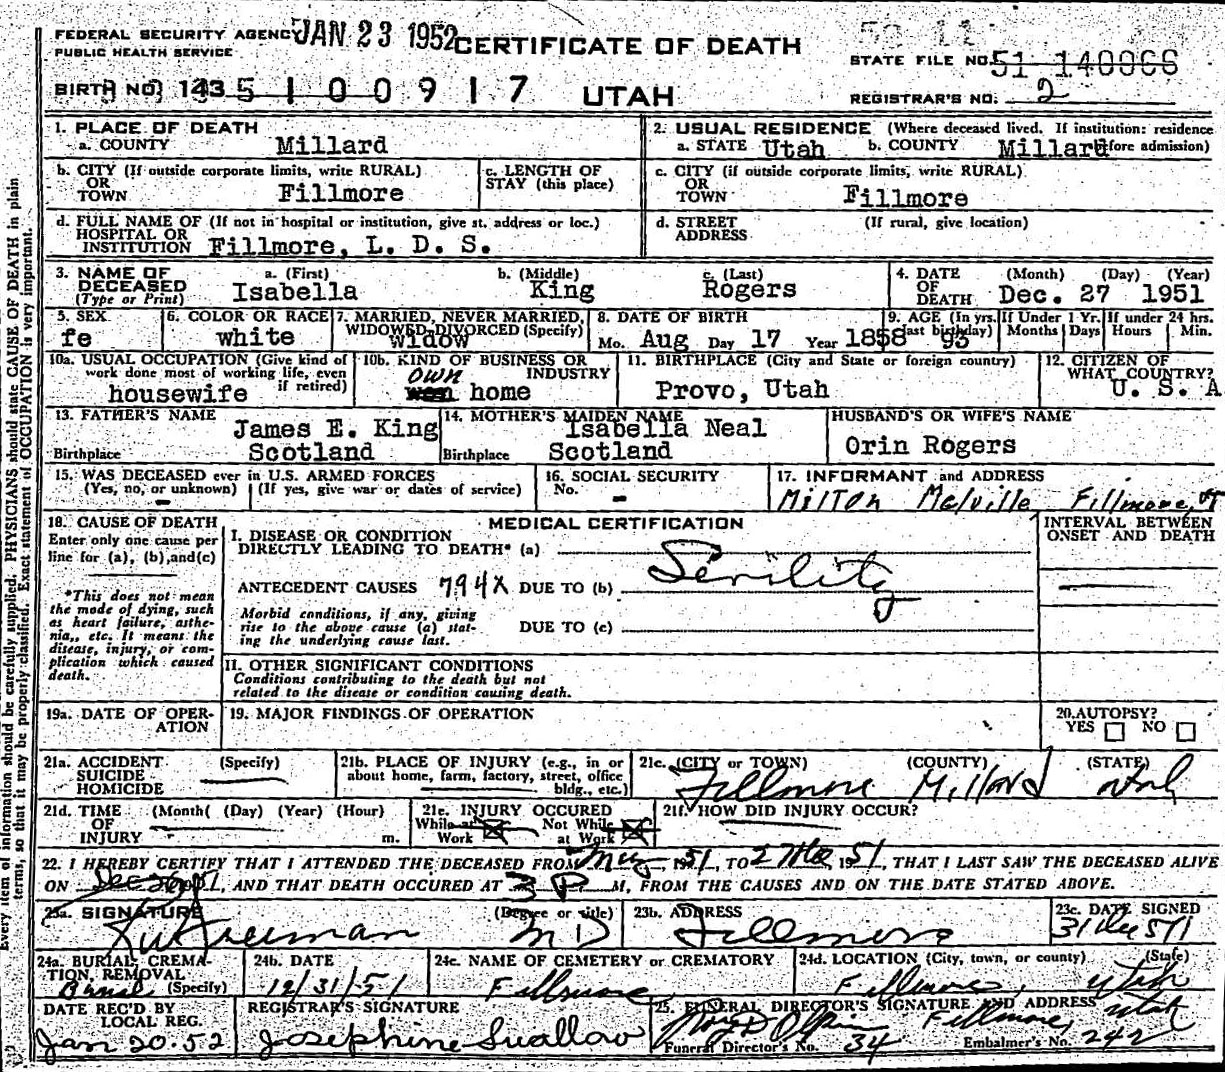 FEDERAL SECURITY AGENCY JAN 23 1952 CERTIFICATE OF DEATH
PUBLIC HEALTH SERVICE
STATE FILE NO. 51 140066
BIRTH NO. 143 5100917 UTAH
REGISTRAR'S NO. 2
1. PLACE OF DEATH
a. COUNTY Millard
2. USUAL RESIDENCE (Where deceased lived. If institution: residence before admission)
a. STATE Utah b. COUNTY Millard
b. CITY (If outside corporate limits, write RURAL)
OR
TOWN Fillmore
c. LENGTH OF
STAY (this place)
c. CITY (if outside corporate limits, write RURAL)
OR
TOWN Fillmore
d. FULL NAME OF (If not in hospital or institution, give st. address or loc.)
HOSPITAL OR
INSTITUTION Fillmore, L. D. S.
d. STREET (If rural, give location)
ADDRESS
3. NAME OF a. (First) b. (Middle) c. (Last)
DECEASED
(Type or Print) Isabella King Rogers
4. DATE (Month) (Day) (Year)
OF
DEATH Dec. 27 1951
5. SEX
fe
6. COLOR OR RACE
white
7. MARRIED, NEVER MARRIED,
WIDOWED, DIVORCED (Specify)
widow
8. DATE OF BIRTH
Mo. Aug Day 17 Year 1858
9. AGE (In yrs. last birthday) 93
If Under 1 Yr. Months Days
If under 24 hrs. Hours Min.
10a. USUAL OCCUPATION (Give kind of
work done most of working life, even
if retired)
housewife
10b. KIND OF BUSINESS OR
INDUSTRY
own home
11. BIRTHPLACE (City and State or foreign country)
Provo, Utah
12. CITIZEN OF
WHAT COUNTRY?
U. S. A
13. FATHER'S NAME
James E. King
Birthplace Scotland
14. MOTHER'S MAIDEN NAME
Isabella Neal
Birthplace Scotland
HUSBAND'S OR WIFE'S NAME
Orin Rogers
15. WAS DECEASED ever in U.S. ARMED FORCES
(Yes, no, or unknown) (If yes, give war or dates of service)
-
16. SOCIAL SECURITY
No. -
17. INFORMANT and ADDRESS
Milton Melville Fillmore, UT
18. CAUSE OF DEATH
Enter only one cause per
line for (a), (b), and (c)
*This does not mean
the mode of dying, such
as heart failure, asthe-
nia,, etc. It means the
disease, injury, or com-
plication which caused
death.
MEDICAL CERTIFICATION
I. DISEASE OR CONDITION
DIRECTLY LEADING TO DEATH* (a)
Senility
ANTECEDENT CAUSES 794X DUE TO (b)
Morbid conditions, if any, giving
rise to the above cause (a) stat-
ing the underlying cause last.
DUE TO (c)
II. OTHER SIGNIFICANT CONDITIONS
Conditions contributing to the death but not
related to the disease or condition causing death.
INTERVAL BETWEEN
ONSET AND DEATH
19a. DATE OF OPER-
ATION
19. MAJOR FINDINGS OF OPERATION
20. AUTOPSY?
YES NO
21a. ACCIDENT (Specify)
SUICIDE
HOMICIDE
21b. PLACE OF INJURY (e.g., in or
about home, farm, factory, street, office
bldg., etc.)
21c. (CITY or TOWN) (COUNTY) (STATE)
Fillmore Millard Utah
21d. TIME (Month) (Day) (Year) (Hour)
OF
INJURY m.
21e. INJURY OCCURED
While at Work Not While at Work
21f. HOW DID INJURY OCCUR?
22. I HEREBY CERTIFY THAT I ATTENDED THE DECEASED FROM 1951, TO 27 Dec, 1951, THAT I LAST SAW THE DECEASED ALIVE
ON Dec 26, 1951, AND THAT DEATH OCCURED AT 3 P M, FROM THE CAUSES AND ON THE DATE STATED ABOVE.
23a. SIGNATURE (Degree or title)
MD
23b. ADDRESS
Fillmore
23c. DATE SIGNED
31 Dec 51
24a. BURIAL, CREMA-
TION, REMOVAL
(Specify) Burial
24b. DATE
12/31/51
24c. NAME OF CEMETERY or CREMATORY
Fillmore
24d. LOCATION (City, town, or county) (State)
Fillmore, Utah
DATE REC'D BY
LOCAL REG.
Jan 20-52
REGISTRAR'S SIGNATURE
Josephine Swallow
25. FUNERAL DIRECTOR'S SIGNATURE AND ADDRESS
Fillmore, Utah
Funeral Director's No. 34 Embalmer's No. 242
Every item of information should be carefully supplied. PHYSICIANS should state CAUSE OF DEATH in plain
terms, so that it may be properly classified. Exact statement of OCCUPATION is very important.